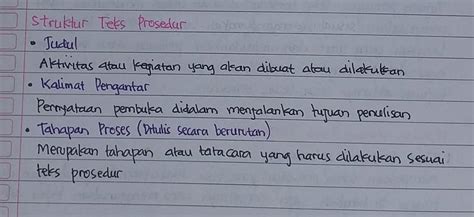 Struktur Teks Prosedur
• Judul
Aktivitas atau kegiatan yang akan dibuat atau dilakukan
• Kalimat Pengantar
Pernyataan pembuka didalam menjalankan tujuan penulisan
• Tahapan Proses (Ditulis secara berurutan)
Merupakan tahapan atau tatacara yang harus dilakukan sesuai
teks prosedur